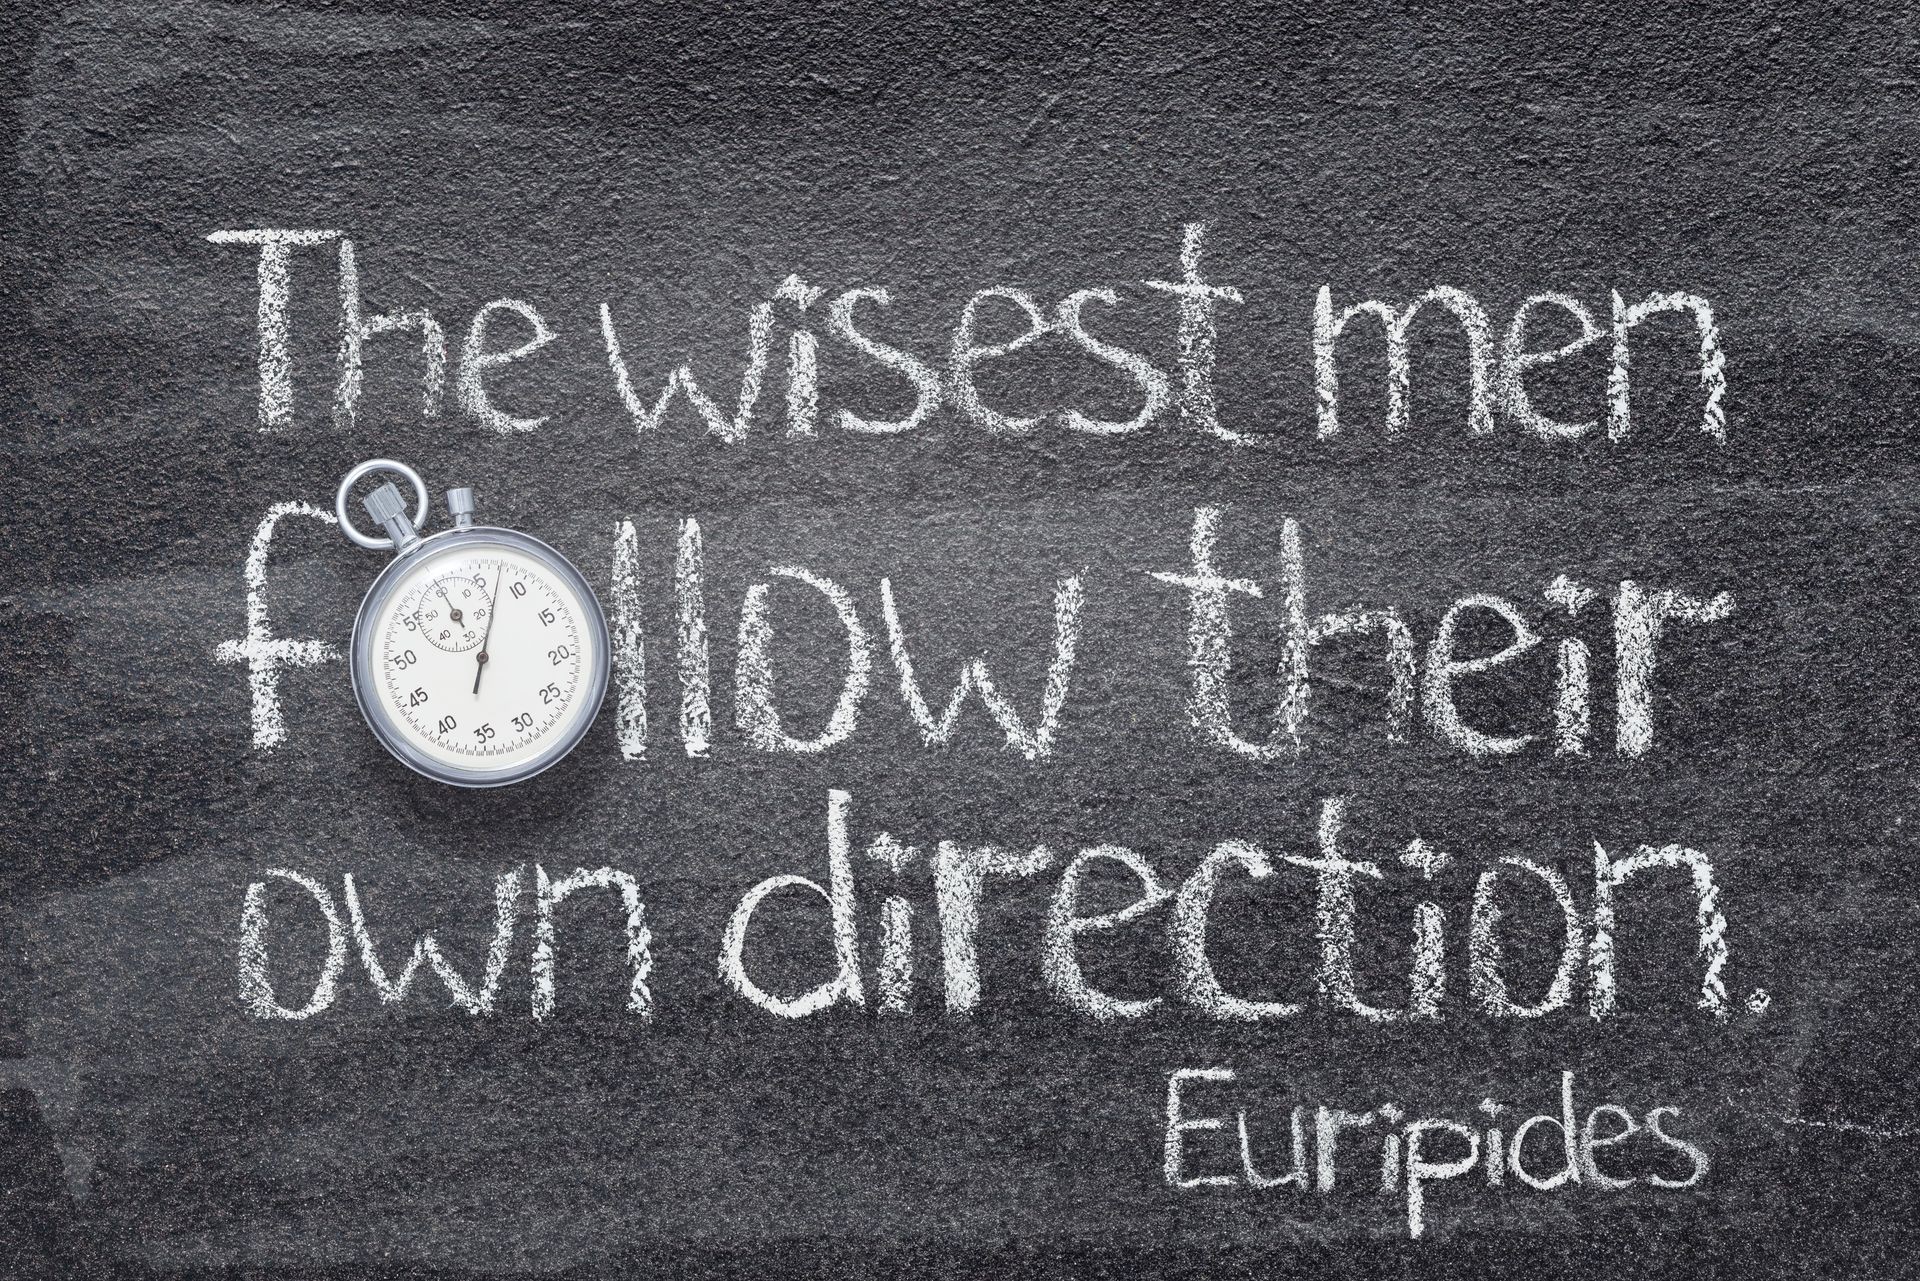 The wisest men
follow their
own direction.
Euripides
60
5
10
15
20
25
30
35
40
45
50
55
60
10
20
30
40
50